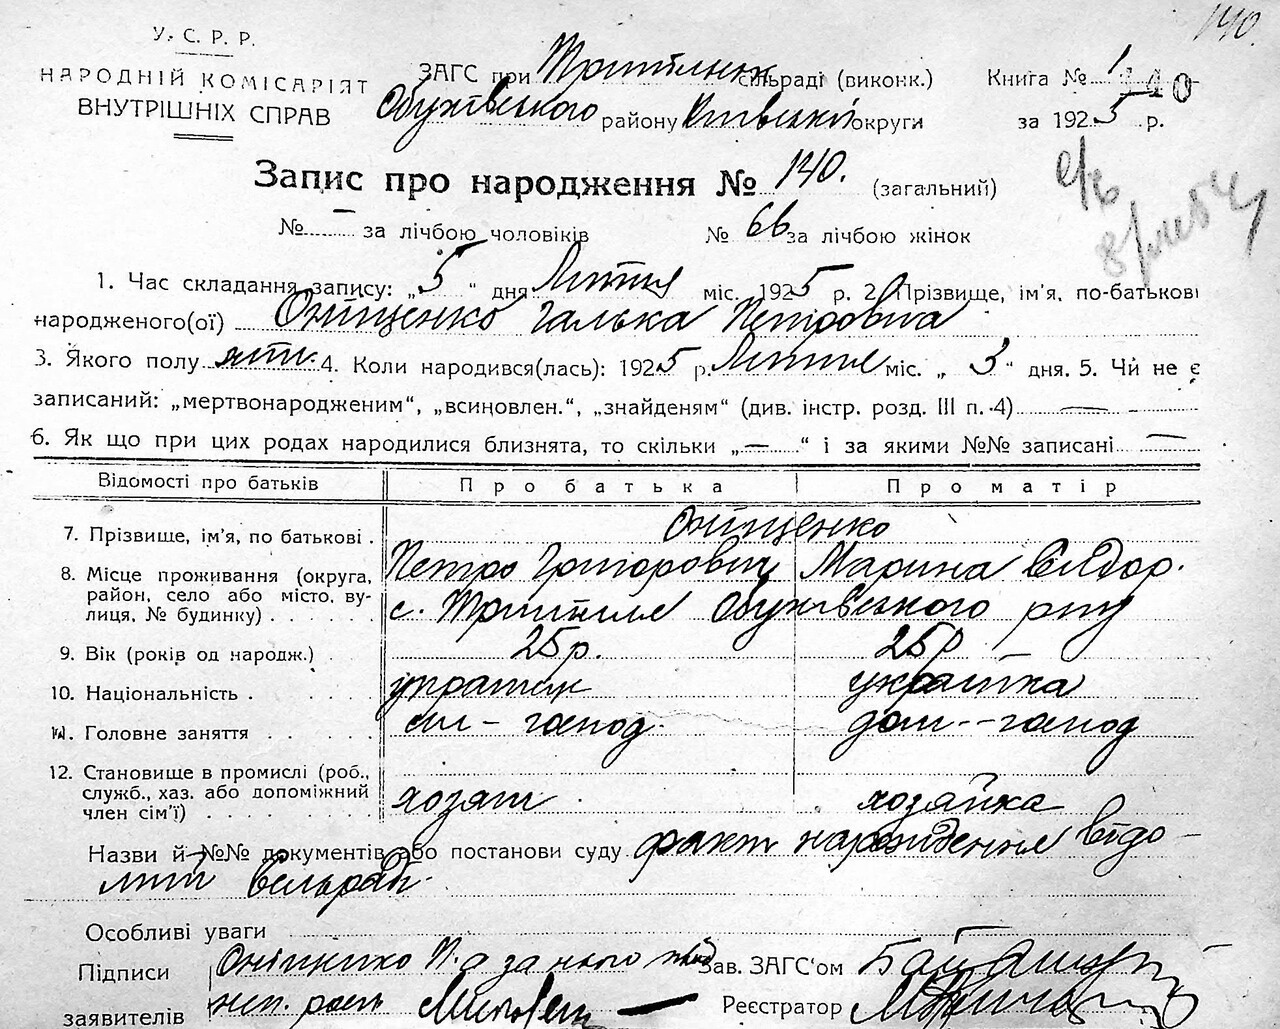 140.
У. С. Р. Р.
НАРОДНІЙ КОМІСАРІЯТ
ВНУТРІШНІХ СПРАВ
ЗАГС при Трипільськ сільраді (виконк.)
Обухівського району Київської округи
Книга № 1
140
за 1925 р.
Запис про народження № 140. (загальний)
№ – за лічбою чоловіків № 66 за лічбою жінок
1. Час складання запису: „5“ дня Липня міс. 1925 р. 2. Прізвище, ім'я, по-батькові
народженого(ої) Оніщенко Галька Петровна
3. Якого полу жін. 4. Коли народився(лась): 1925 р. Липня міс. „3“ дня. 5. Чи не є
записаний: „мертвонародженим“, „всиновлен.“, „знайденям“ (див. інстр. розд. III п. 4) —
6. Як що при цих родах народилися близнята, то скільки „—“ і за якими №№ записані —
Відомості про батьків Про батька Про матір
7. Прізвище, ім'я, по батькові . Оніщенко
Петро Григорович Марина
8. Місце проживання (округа, район, село або місто, вулиця, № будинку) с. Трипілля Обухівського рну
9. Вік (років од народж.) 25 р. 25 р
10. Національність . українець українка
11. Головне заняття . сіл – господ. дом – господ
12. Становище в промислі (роб., служб., хаз. або допоміжний член сім'ї) хозяїн хозяйка
Назви й №№ документів або постанови суду факт народження відо-
мий сельраді.
Особливі уваги
Підписи Оніщенко П. а за нього Зав. ЗАГС'ом
заявителів неп. розп Реєстратор